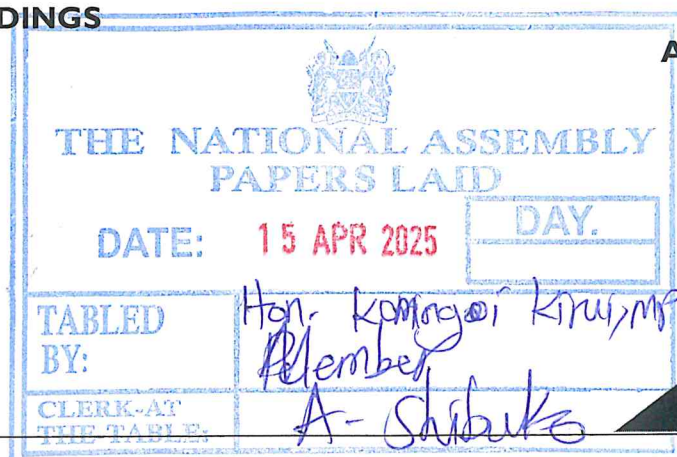 DINGS
A
THE NATIONAL ASSEMBLY
PAPERS LAID
DATE: 15 APR 2025 DAY.
TABLED BY: Hon. Kirui, MP
Member
CLERK-AT THE-TABLE: A- Shibuko